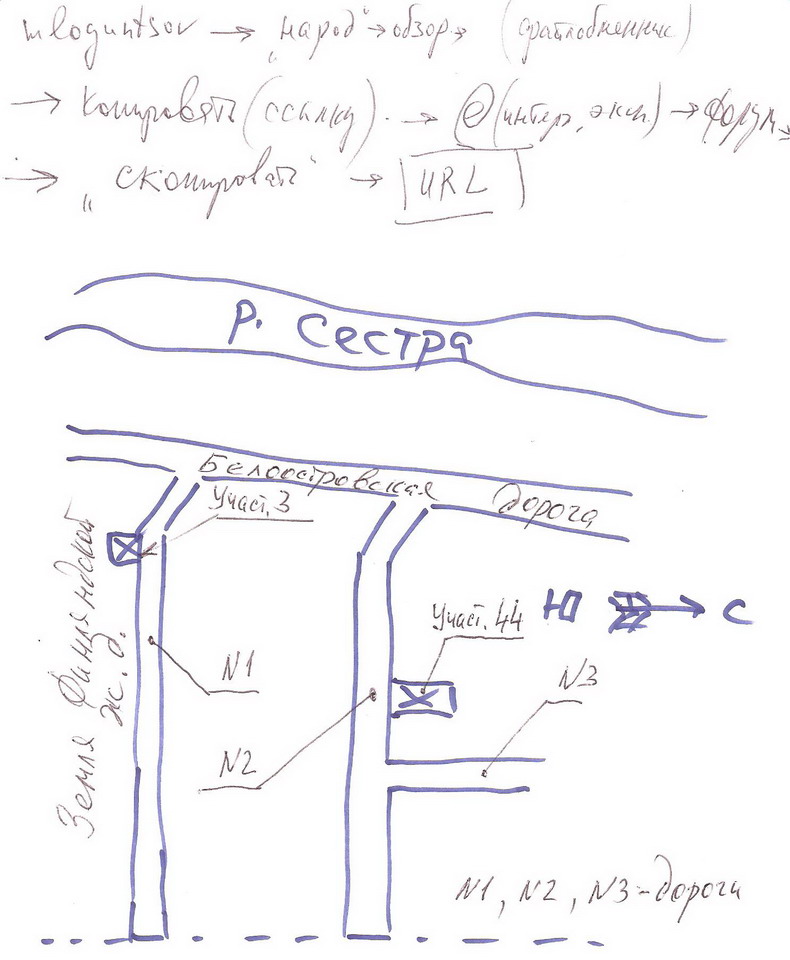 mloguntsov → "народ" → обзор → (файлобменник)
→ копировать (ссылку) → e (интер, эксп.) → форум →
→ "скопировать" → URL
р. Сестра
Белоостровская дорога
Участ. 3
Земля Финляндской ж.д.
Участ. 44
Ю → С
N1
N3
N2
N1, N2, N3 - дороги